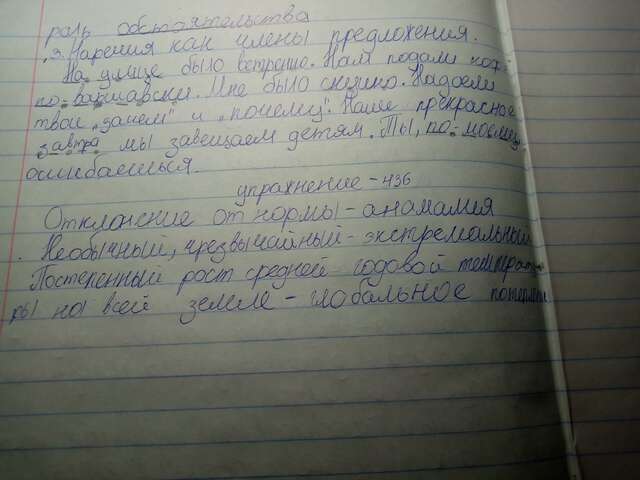 роль обстоятельства
3. Наречия как члены предложения.
На улице было ветренно. Нам подали кот-
по-варшавски. Мне было скучно. Надоели
твои „зачем" и „почему". Наше прекрасное
завтра мы завещаем детям. Ты, по-моему,
ошибаешься.
упражнение - 436
Отклонение от нормы - анамалия
Необычный, чрезвычайный - экстремальный
Постепенный рост средней годовой температу-
ры на всей земле - глобальное